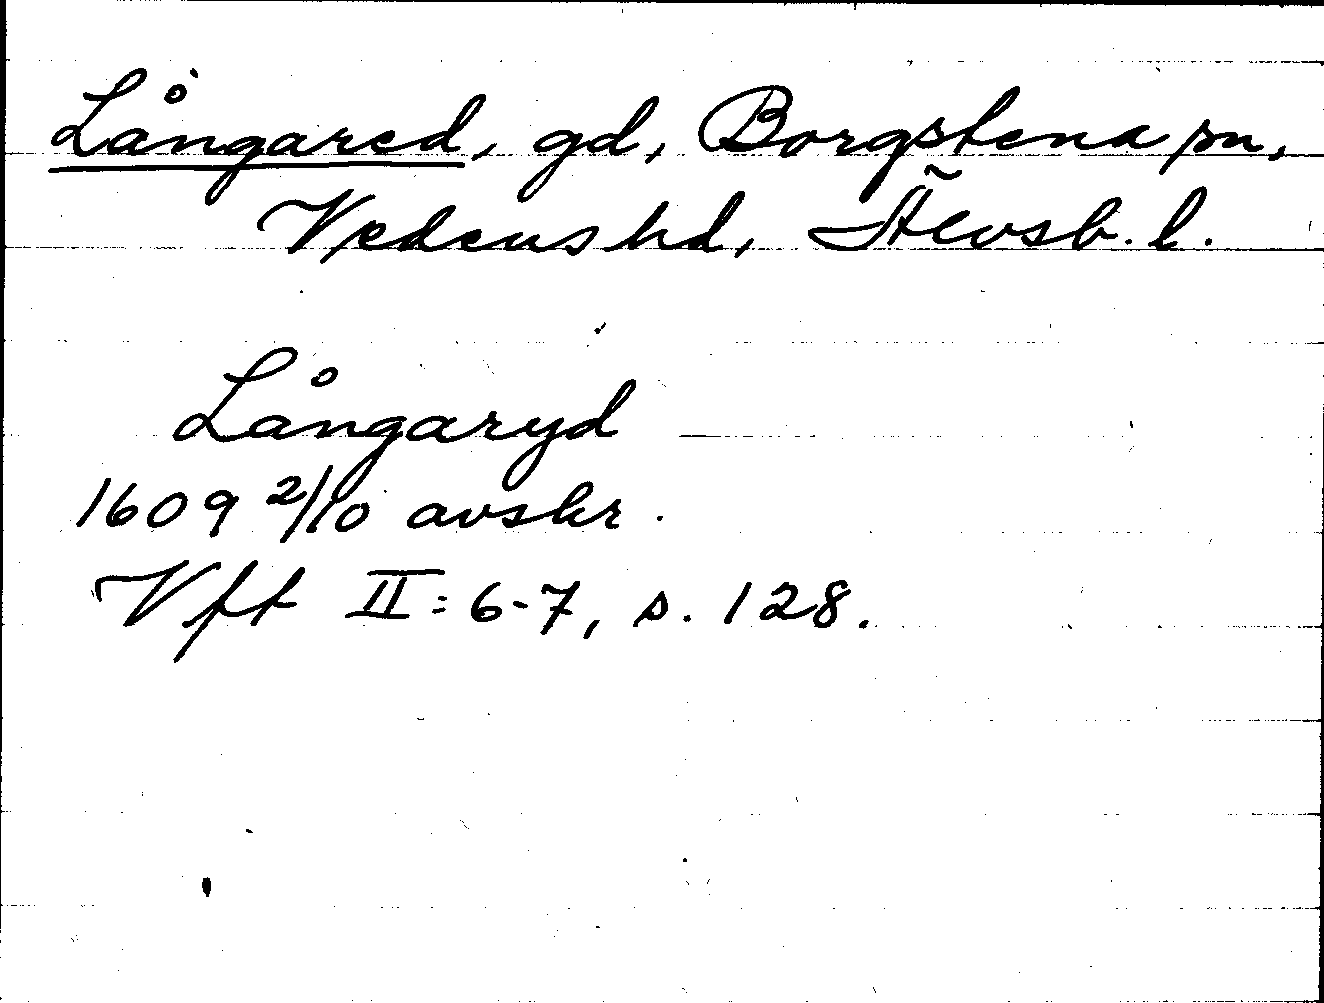 Långared, gd, Borgstena sn,
Vedens hd, Älvsb. l.
Långaryd
1609 2/10 avskr.
Vft II: 6-7, s. 128.